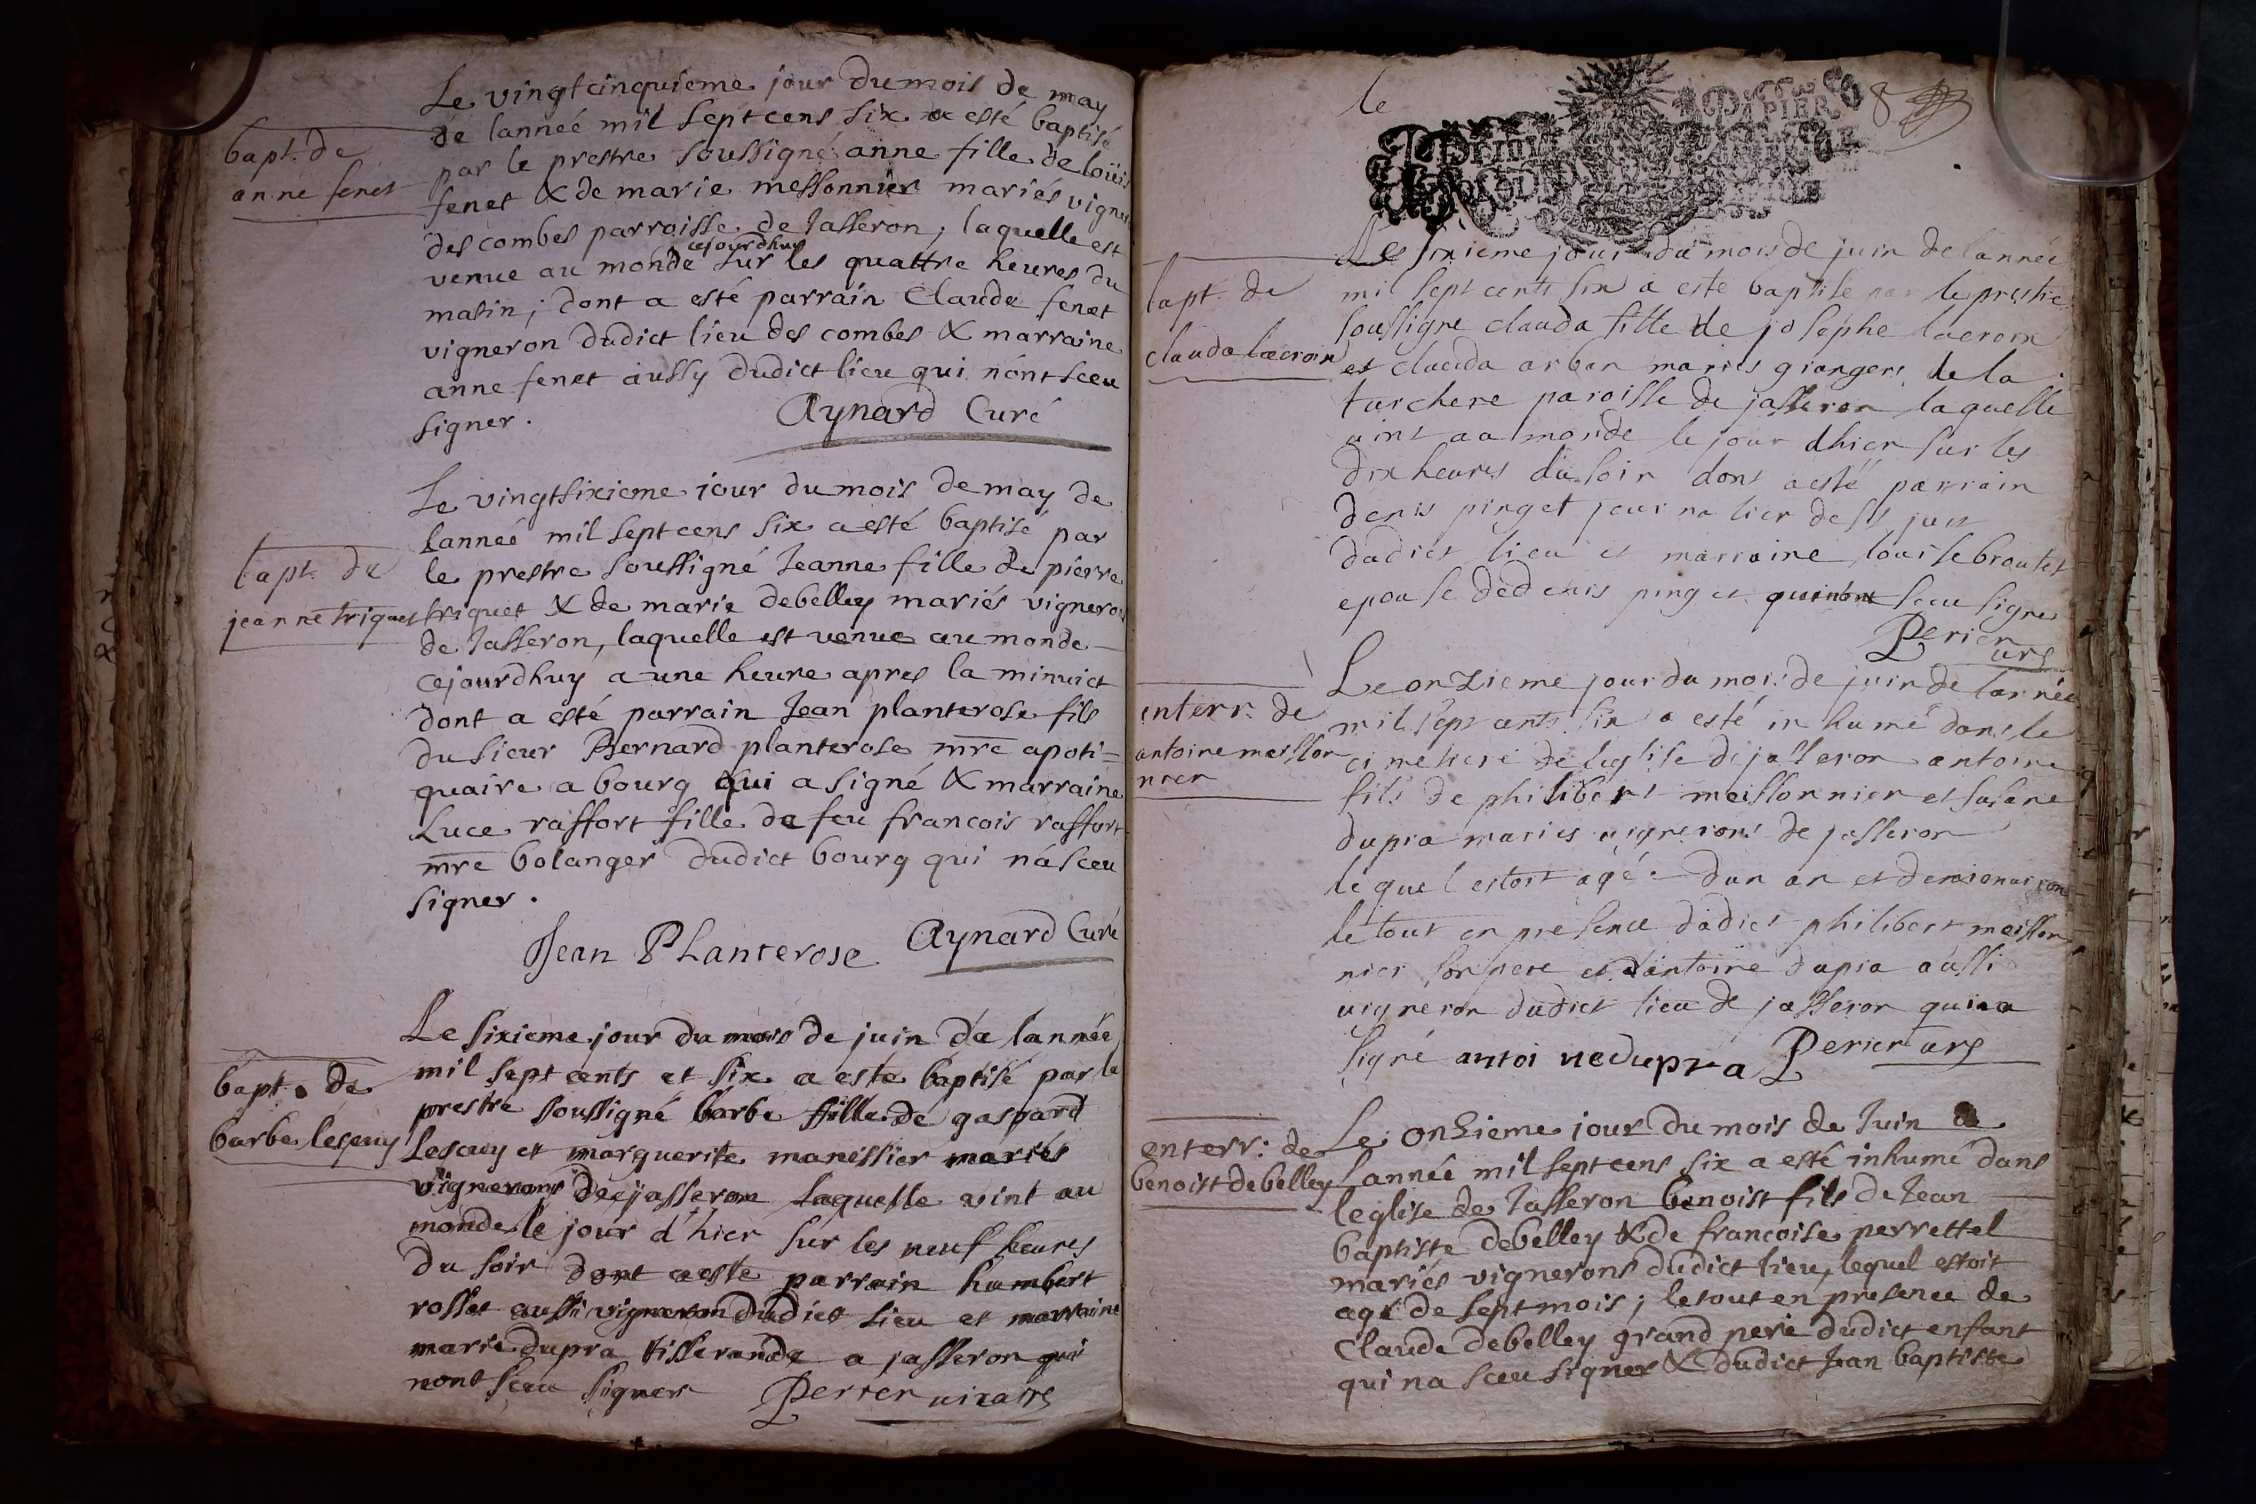 bapt. de
anne fenet
Le vingtcinquieme jour du mois de may
de lanneé mil septcens six a esté baptisé
par le prestre soussigné anne fille de loüis
fenet & de marie messonnier mariés vigne
des combes parroisse de Jasseron, laquelle est
cejourdhuy
venue au monde sur les quattre heures du
matin; dont a esté parrain Claude fenet
vigneron dudict lieu des combes & marraine
anne fenet aussy dudict lieu qui nónt sceu
signer.
Aynard Curé
bapt. de
jeanne triquet
Le vingtsixieme jour du mois de may de
lanneé mil septcens six a esté baptisé par
le prestre soussigné Jeanne fille de pierre
triquet & de marie debelley mariés vignerons
de Jasseron, laquelle est venue au monde
cejourdhuy a une heure apres la minuict
dont a esté parrain Jean planterose fils
du sieur Bernard planterose mre apoti=
quaire a bourg qui a signé & marraine
Luce raffort fille de feu francois raffort
mre bolanger dudict bourg qui ná sceu
signer.
Jean PLanterose Aynard Curé
bapt. de
barbe lescuy
Le sixieme jour du mois de juin de lannée
mil sept cents et six a este baptisé par le
prestre soussigné barbe fille de gaspard
Lescuy et marguerite manissier mariés
vignerons de jasseron laquelle vint au
monde le jour d'hier sur les neuf heures
du soir dont a este parrain humbert
rosset aussi vigneron dudict lieu et marraine
marie dupra tisserande a jasseron qui
nont sceu signer Perier vicaire
le
8
bapt. de
clauda lacroix
Le sixieme jour du mois de juin de lannée
mil sept cents six a este baptise par le prestre
soussigné clauda fille de josephe lacroix
et clauda arban mariés grangers de la
turchere paroisse de jasseron laquelle
vint au monde le jour dhier sur les
dix heures du soir dont a esté parrain
denis pinget journalier
dudict lieu et marraine louise broutet
epouse de denis pinget qui nont sceu signer
Perier
interr. de
antoine meisson
nier
Le onzieme jour du mois de juin de lannée
mil sept cents six a esté inhumé dans le
cimetiere de leglise de jasseron antoine
fils de philibert meissonnier et susane
dupra mariés vignerons de jasseron
lequel estoit agé dun an et demi
le tout en presence dudict philibert meisson
nier son pere et dantoine dupra aussi
vigneron dudict lieu de jasseron qui a
signé antoi nedupra Perier
enterr: de
benoist debelley
Le onzieme jour du mois de Juin de
Lannée mil septcens six a esté inhumé dans
leglise de Jasseron benoist fils de Jean
baptiste debelley & de francoise perrettel
mariés vignerons dudict lieu, lequel estoit
agé de sept mois; le tout en presence de
Claude debelley grand pere dudict enfant
qui na sceu signer & dudict Jean baptiste